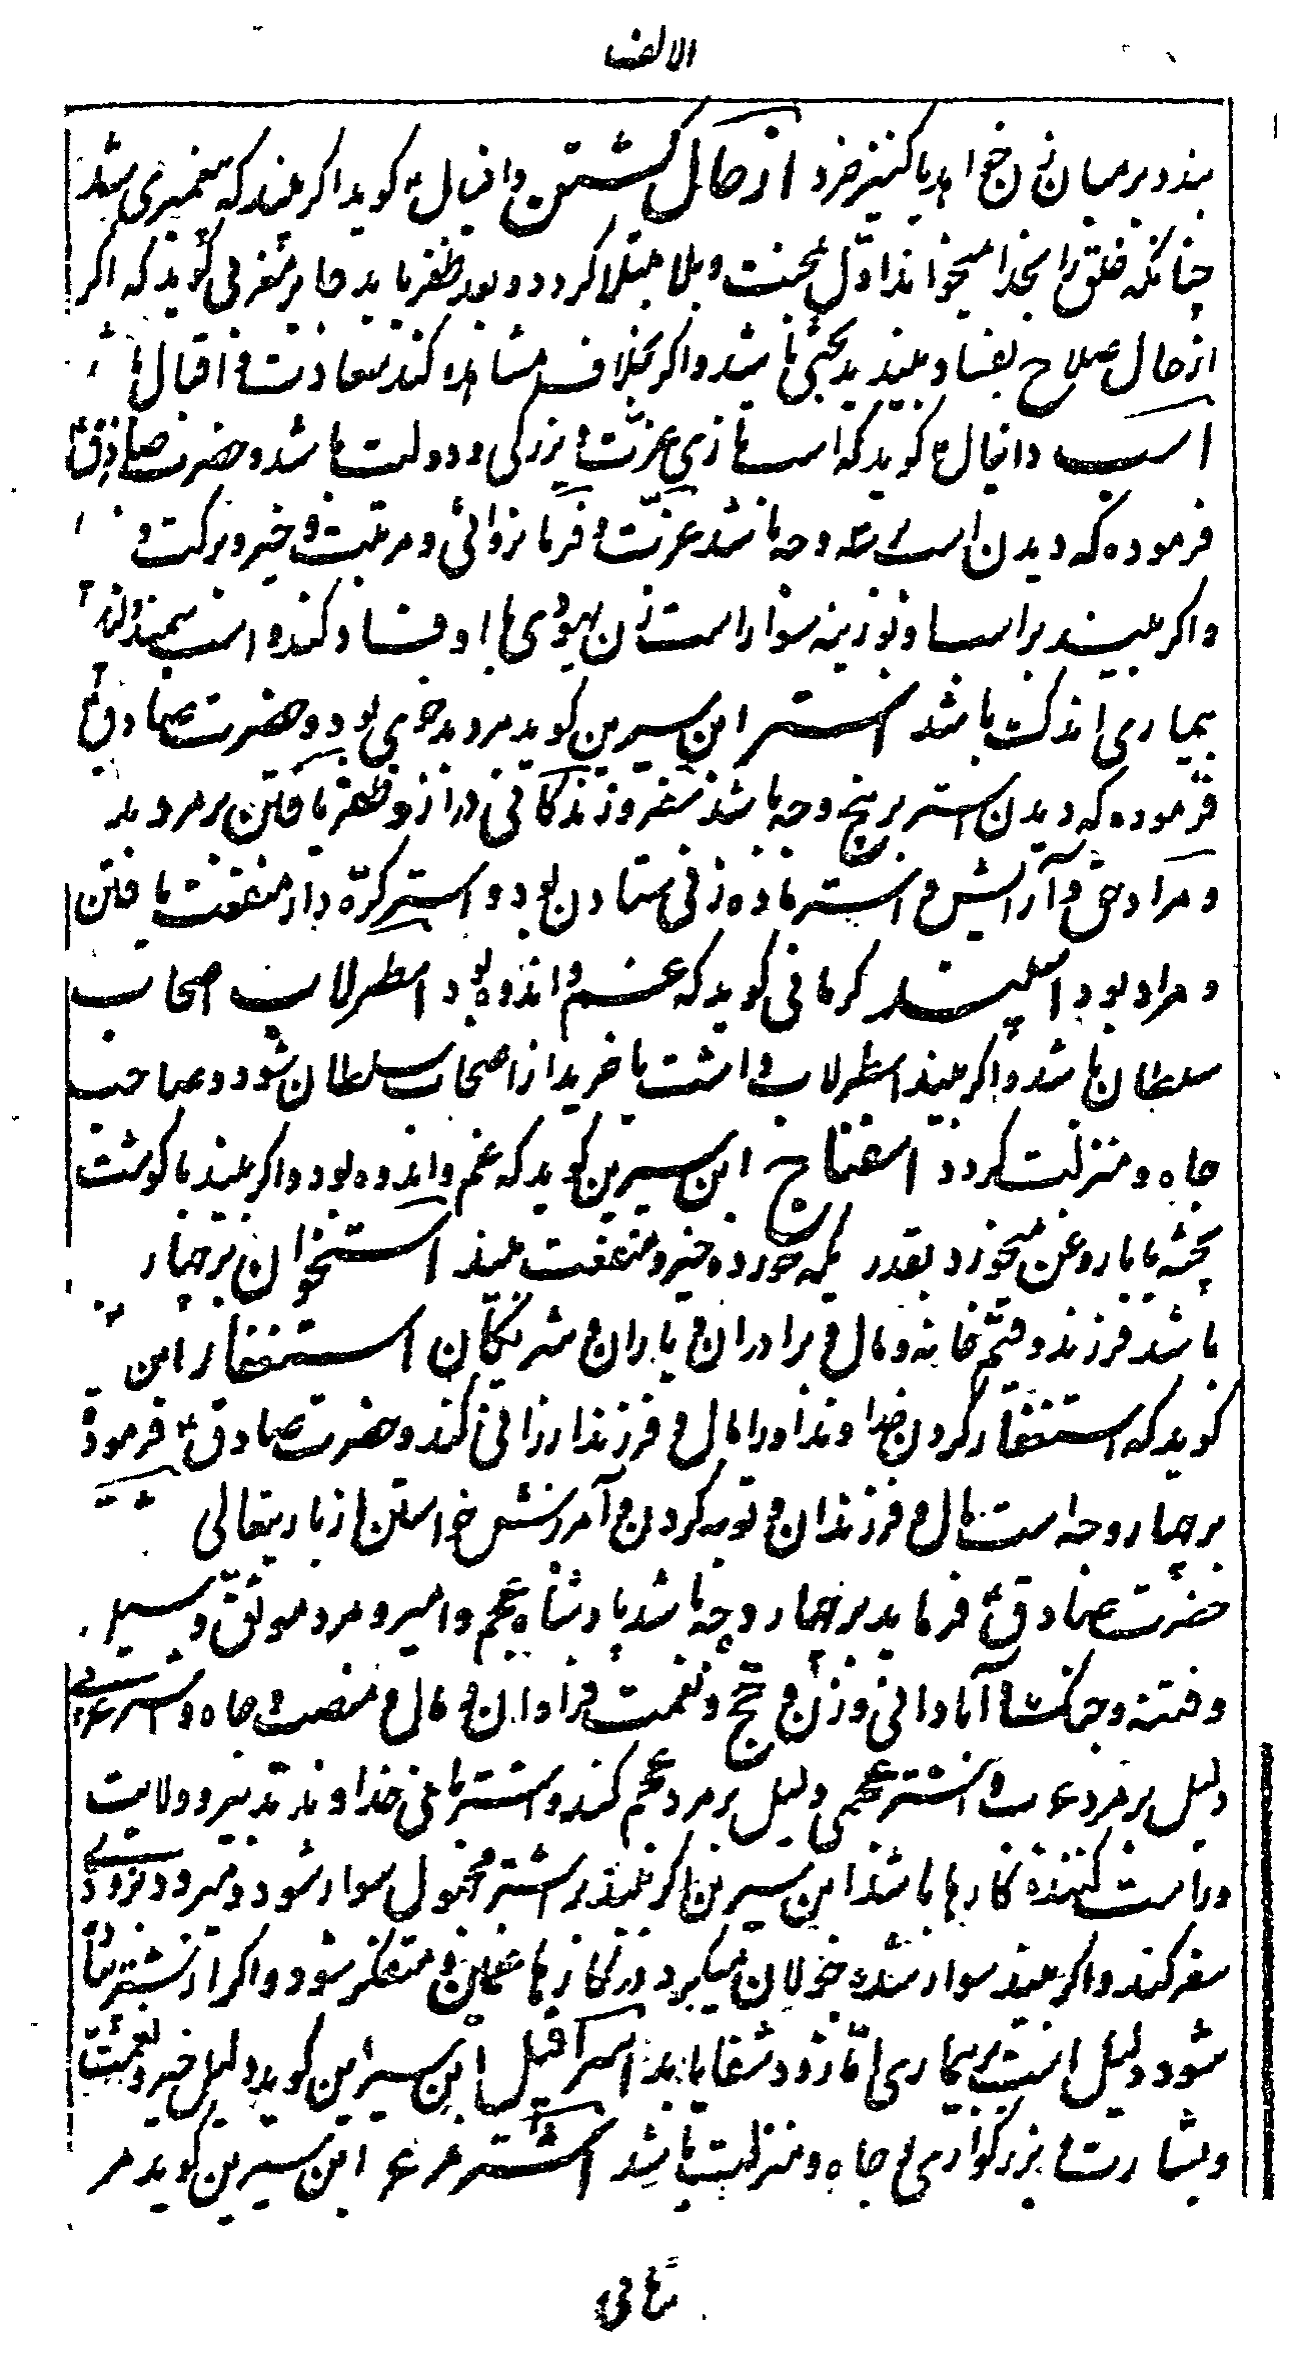 الالف
بندد بر میان زن خواهد یا کنیز خرد از حال گشتن دانیال ع گوید اگر بیند که پیغمبری شد
چنانکه خلق را بخدا میخواند اول بمحنت و بلا مبتلا گردد و بعد ظفر یابد جابر مغربی گوید که اگر
از حال صلاح بفساد بیند بدبختی باشد و اگر بخلاف مشاهده کند سعادت و اقبال
اسب دانیال ع گوید که اسب تازی عزت و بزرگی و دولت باشد و حضرت صادق ع
فرموده که دیدن اسب بر سه وجه باشد عزت و فرمانروائی و مرتبت و خیر و برکت و
و اگر بیند بر اسب و نوزینه سوار است زن یهودی با او فساد کند و اسب
بیماری اندک باشد استر ابن سیرین گوید مرد بدخوی بود و حضرت صادق ع
فرموده که دیدن استر بر پنج وجه باشد سفر و زندگانی دراز و ظفر یافتن بر مرد بد
و مراد حق و آرایش و استر ماده زنی ستادن بود و استر کره دار منفعت یافتن
و مراد بود اسپند کرمانی گوید که غم و اندوه بود اسطرلاب اصحاب
سلطان باشد و اگر بیند اسطرلاب داشت یا خرید از اصحاب سلطان شود و صاحب
جاه و منزلت گردد اسفناج ابن سیرین گوید که غم و اندوه بود و اگر بیند با گوشت
پخته یا با روغن میخورد بقدر آنکه خورده خیر و منفعت بیند استخوان بر چهار
باشد فرزند و قیم خانه و مال و برادران و یاران و شریکان استغفار ابن
گوید که استغفار کردن خداوند او را مال و فرزند ارزانی کند و حضرت صادق ع فرموده
بر چهار وجه است مال و فرزندان و توبه کردن و آمرزش خواستن از باریتعالی
حضرت صادق ع فرماید بر چهار وجه باشد پادشاه عجم و امیر و مرد موثق و سیل
و فتنه و جنگ و آبادانی و زن و حج و نعمت فراوان و مال و منصب و جاه و اشتر عربی
دلیل بر مرد عرب و اشتر عجمی دلیل بر مرد عجم کند و اشتر باغی خداوند تدبیر و ولایت
و راست کننده کارها باشد ابن سیرین اگر بیند بر اشتر مجهول سوار شود و میرود بزودی
سفر کند و اگر بیند سوار شده جولان میگیرد در کارها غمگین و متفکر شود و اگر از اشتر پیاده
شود دلیل است بر بیماری اما زود شفا یابد اسرافیل ابن سیرین گوید دلیل خیر و نعمت
و بشارت و بزرگواری و جاه و منزلت باشد اشترمرغ ابن سیرین گوید مر